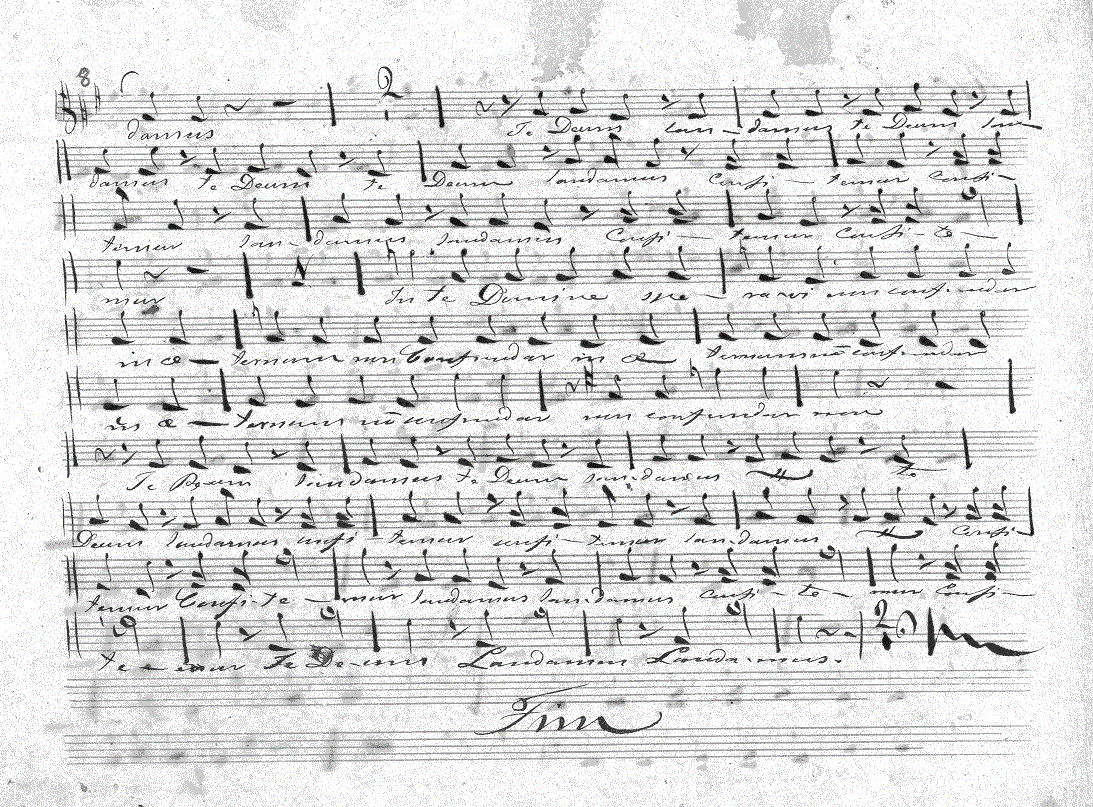 8
2
damus Te Deum lau - damus te Deum lau
damus te Deum te Deum laudamus confi - temur confi -
temur lau - damus laudamus Confi - temur confi - te -
mur In te Domine spe - ravi non confundar
in æ - ternum non Confundar in æ - ternum nō confundar
in æ - ternum nō confundar non confundar
Te Deum laudamus te Deum lau-damus te
Deum laudamus confi - temur confi - temur lau-damus Confi -
temur Confi - te - mur laudamus lau-damus confi - te - mur Confi -
2
te - mur Te De-um Laudamus Lauda-mus.
Fim